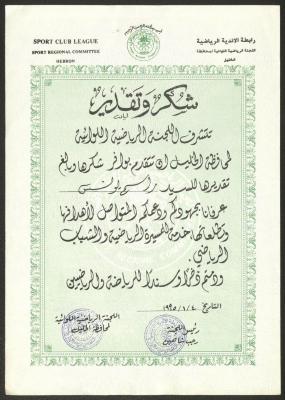 SPORT CLUB LEAGUE
SPORT REGIONAL COMMITTEE
HEBRON
رابطة الاندية الرياضية
اللجنة الرياضية اللوائية لمحافظة
الخليل
شكر وتقدير
تتشرف اللجنة الرياضية اللوائية
لمحافظة الخليل ان تتقدم بوافر شكرها وبالغ
تقديرها للسيد راسم يونس
عرفانا بجهودكم ودعمكم المتواصل لأهدافها
وتطلعاتها خدمة للمسيرة الرياضية والشباب
الرياضي.
ودمتم ذخرا وسندا للرياضة والرياضيين
التاريخ ١٩٩٥/١/٤
اللجنة الرياضية اللوائية
لمحافظة الخليل
رئيس اللجنة